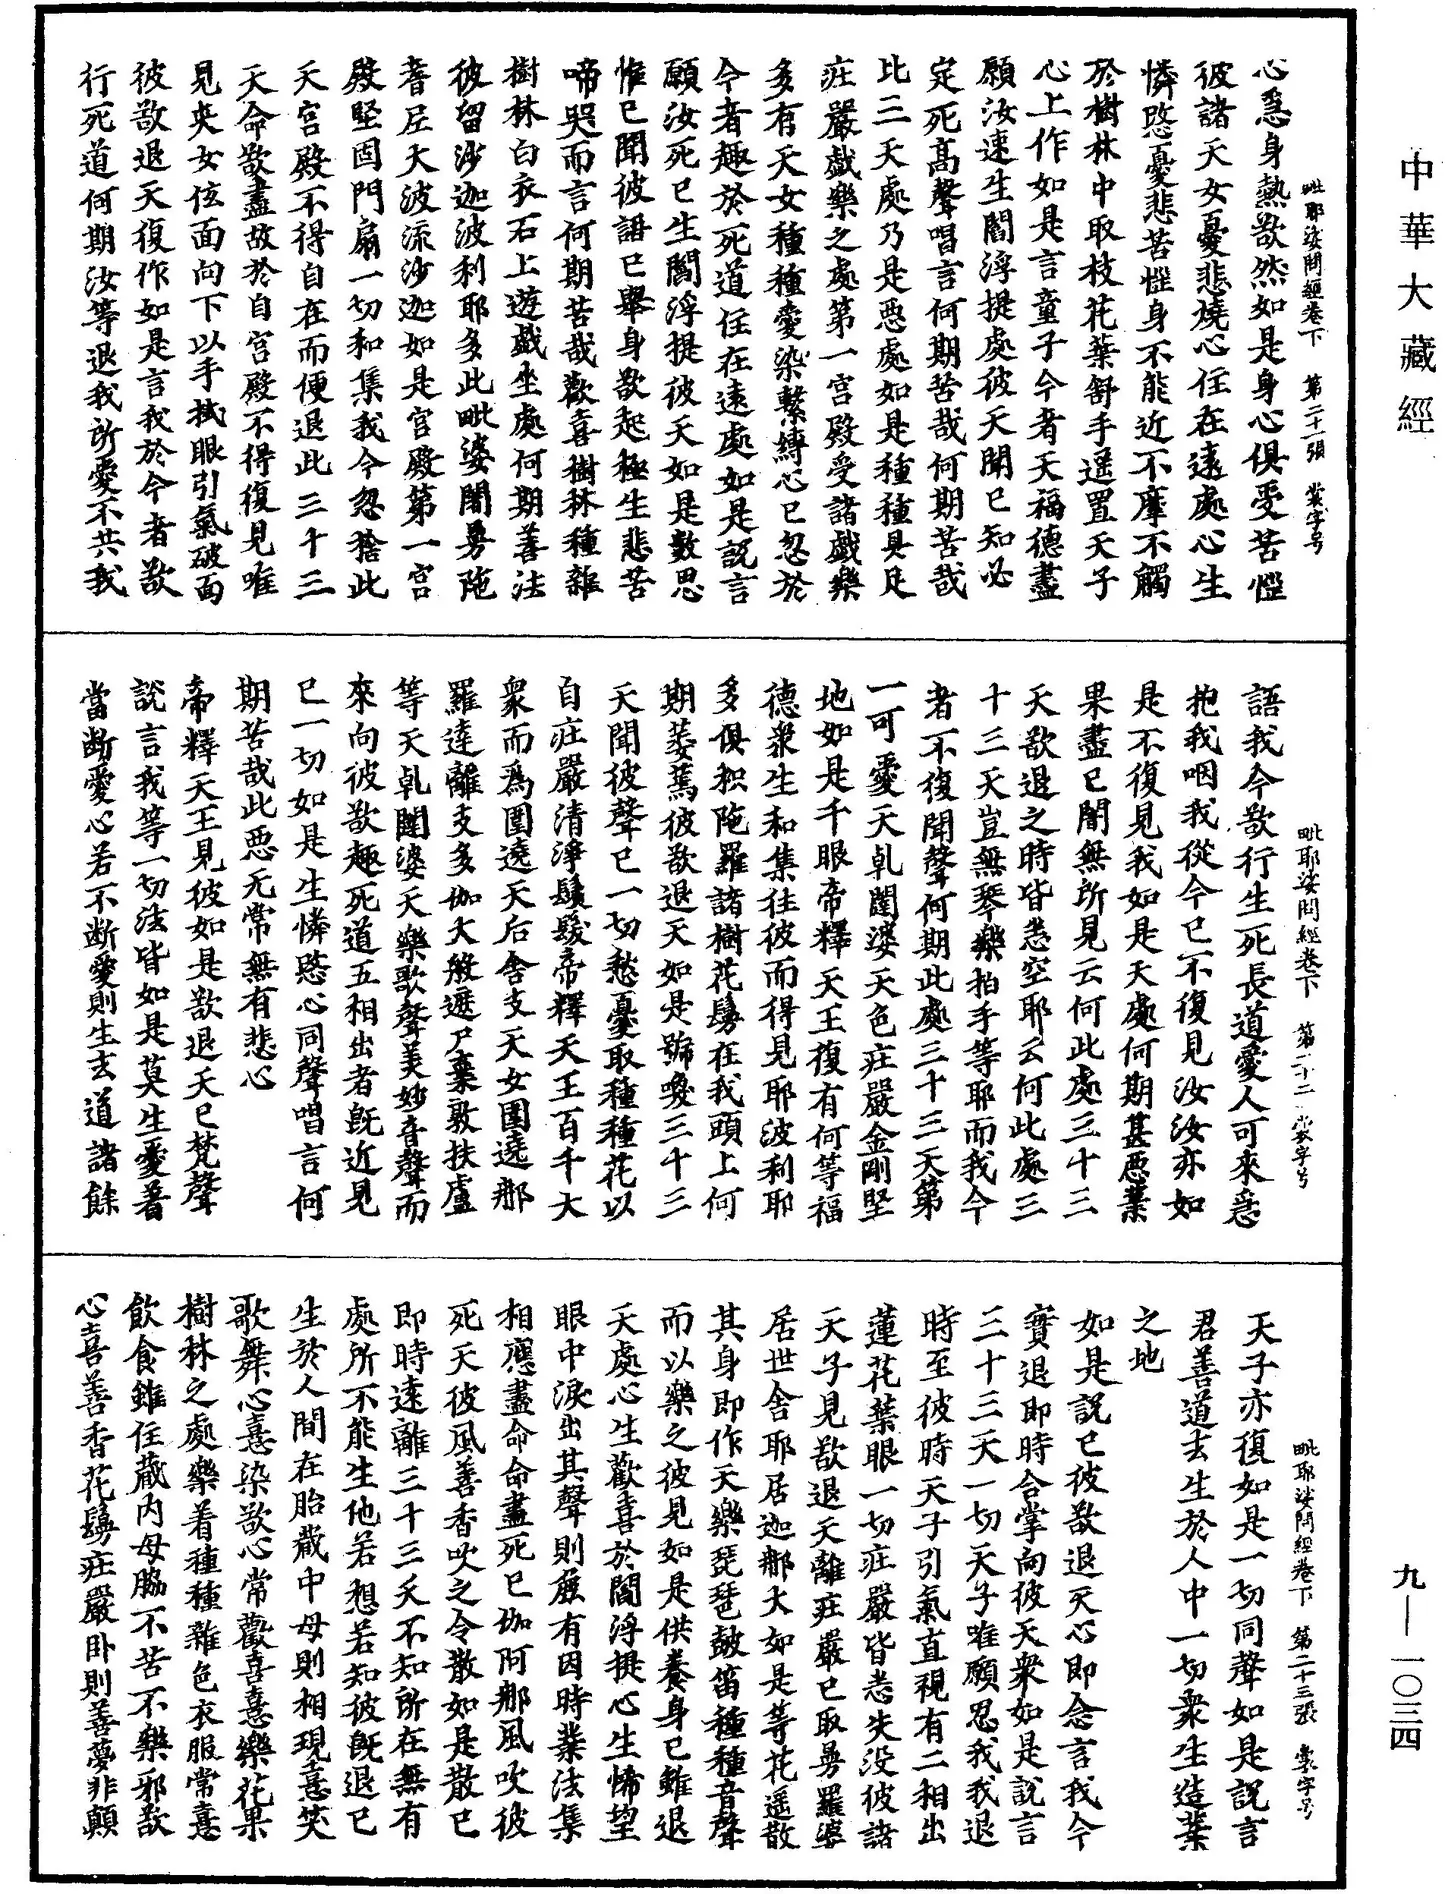 中華大藏經
毗耶娑問經卷下　第二十一張　裳字号
心急身熱欲然如是身心俱受苦惱
彼諸天女憂悲燒心住在遠處心生
憐愍憂悲苦惱身不能近不摩不觸
於樹林中取枝花葉舒手遥置天子
心上作如是言童子今者天福德盡
願汝速生閻浮提處彼天聞已知必
定死高聲唱言何期苦哉何期苦哉
比三天處乃是惡處如是種種具足
莊嚴戲樂之處第一宫殿受諸戲樂
多有天女種種愛染繫縛心已忽於
今者趣於死道住在遠處如是説言
願汝死已生閻浮提彼天如是數思
惟已聞彼語已舉身欲起極生悲苦
啼哭而言何期苦哉歡喜樹林種雜
樹林白衣石上遊戲坐處何期善法
彼留沙迦波利耶多此毗婆闍勇陁
耆𡱝大波流沙迦如是宫殿第一宫
殿堅固門扇一切和集我今忽捨此
天宫殿不得自在而便退此三十三
天命欲盡故於自宫殿不得復見唯
見天女低面向下以手拭眼引氣破面
彼欲退天復作如是言我於今者欲
行死道何期汝等退我所愛不共我
毗耶娑問經卷下　第二十二　裳字号
語我今欲行生死長道愛人可來急
抱我咽我從今已不復見汝汝亦如
是不復見我如是天處何期甚惡業
果盡已闇無所見云何此處三十三
天欲退之時皆悉空耶云何此處三
十三天豈無琴樂拍手等耶而我今
者不復聞聲何期此處三十三天第
一可愛天乹闥婆天色莊嚴金剛堅
地如是千眼帝釋天王復有何等福
德衆生和集往彼而得見耶波利耶
多俱枳陁羅諸樹花鬘在我頭上何
期萎蔫彼欲退天如是號喚三十三
天聞彼聲已一切愁憂取種種花以
自莊嚴清淨鬚髮帝釋天王百千大
衆而爲圍遶天后舍支天女圍遶那
羅達離支多伽大般遮尸棄敦扶盧
等天乹闥婆天樂歌聲美妙音聲而
來向彼欲趣死道五相出者旣近見
已一切如是生憐愍心同聲唱言何
期苦哉此惡无常無有悲心
帝釋天王見彼如是欲退天已梵聲
說言我等一切法皆如是莫生愛著
當斷愛心若不斷愛則生去道諸餘
毗耶娑問經卷下　第二十三張　裳字号
天子亦復如是一切同聲如是說言
君善道去生於人中一切衆生造業
之地
如是說已彼欲退天心即念言我今
實退即時合掌向彼天衆如是説言
三十三天一切天子唯願忍我我退
時至彼時天子引氣直視有二相出
蓮花葉眼一切莊嚴皆悉失没彼諸
天子見欲退天離莊嚴已取曼羅婆
居世舍耶居迦那大如是等花遥散
其身即作天樂琵琶鼓笛種種音聲
而以樂之彼見如是供養身已雖退
天處心生歡喜於閻浮提心生悕望
眼中淚出其聲則癋有因時業法集
相應盡命命盡死已伽阿那風吹彼
死天彼風善香吹之令散如是散已
即時遠離三十三天不知所在無有
處所不能生他若想若知彼旣退已
生於人間在胎藏中母則相現憙笑
歌舞心憙染欲心常歡喜憙樂花果
樹林之處樂着種種雜色衣服常憙
飲食雖住藏内母脇不苦不樂邪欲
心喜善香花鬘莊嚴卧則善夢非顛
九—一〇三四